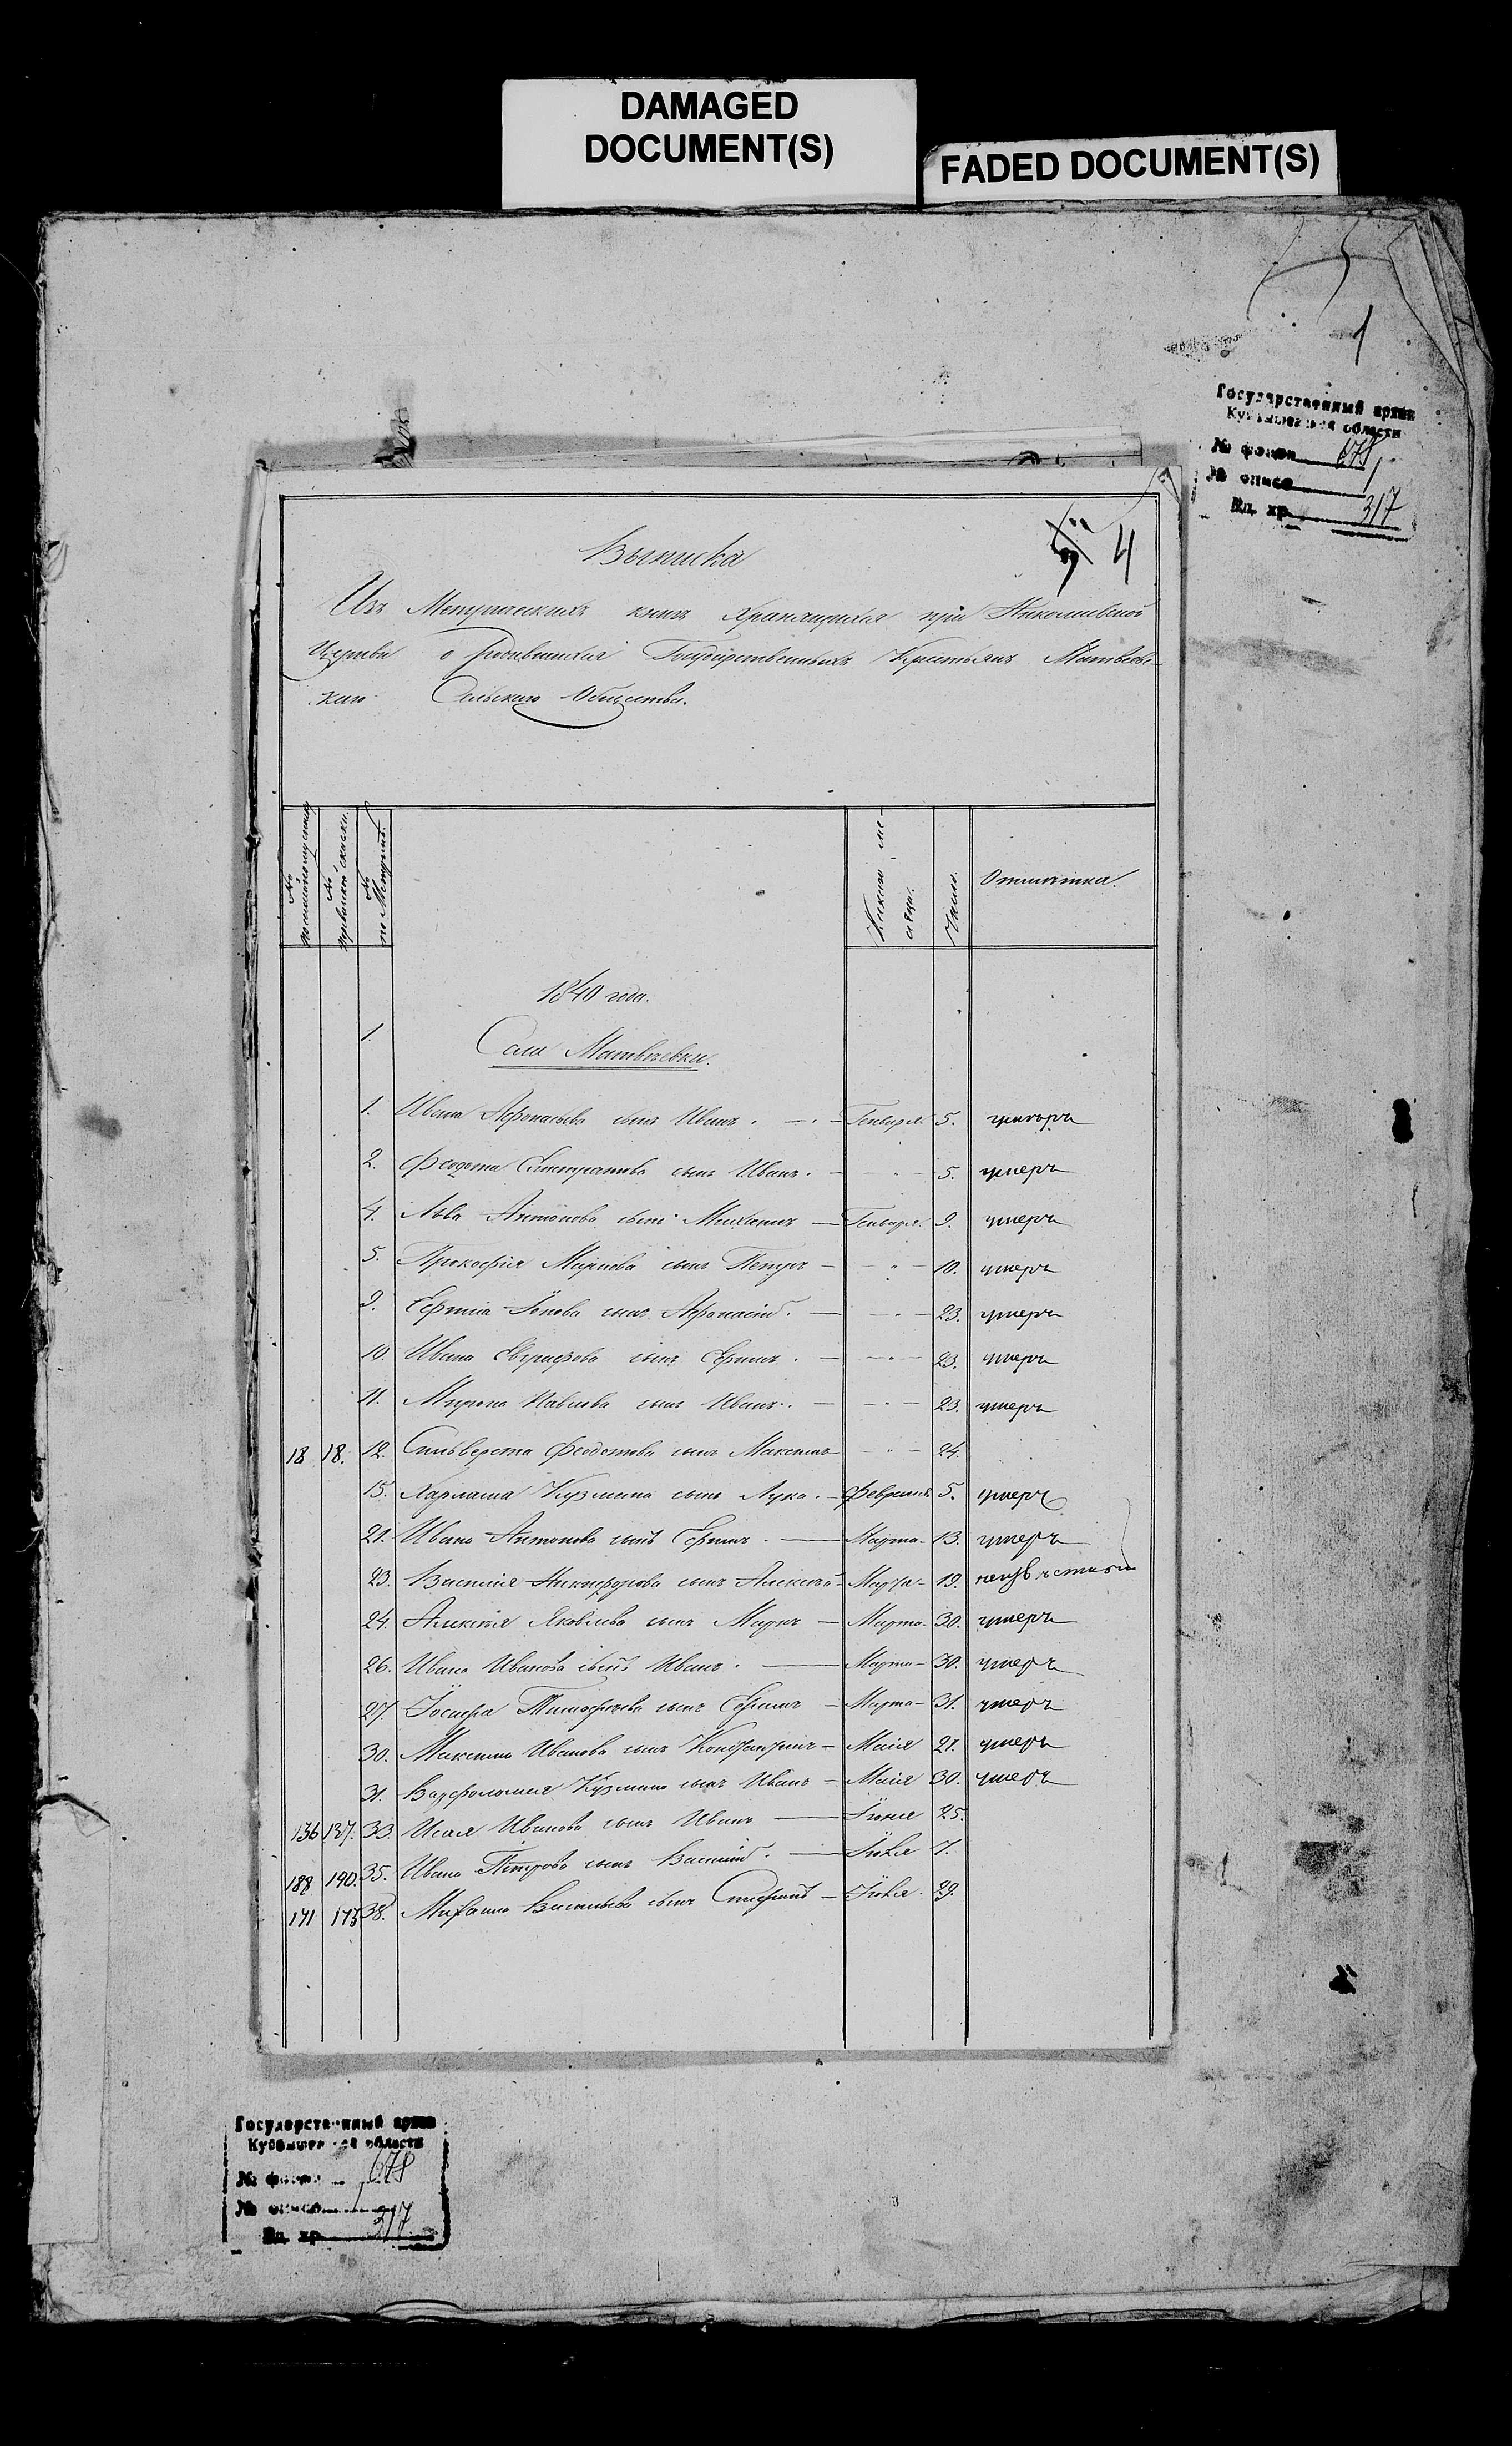 DAMAGED
DOCUMENT(S)
FADED DOCUMENT(S)
1
Государственный архив
Куйбышевская области
№ фонда 678
№ описи 1
Ед. хр. 317
4
Выписка
Изъ Метрическихъ книгъ хранящихся при Николаевской
Церкви о родившихся Государственныхъ Крестьянъ Матвеевс-
каго Сельскаго Общества.
№
№
№ по Метрике.
Какого ме-
сяца.
Число.
Отметка.
1840 года.
1.
Села Матвеевки.
1. Ивана Афонасьева сынъ Иванъ. Генваря 5. умеръ
2. Феодота Евстратова сынъ Иванъ. 5. умеръ
4. Льва Антонова сынъ Михаилъ Генваря 9. умеръ
5. Прокофія Маркова сынъ Петръ 10. умеръ
9. Сергия Іонова сынъ Афонасій. 23. умеръ
10. Ивана Евграфова сынъ Ефимъ. 23. умеръ
11. Мирона Павлова сынъ Иванъ. 23. умеръ
18 18. 12. Сильверста Феодотова сынъ Максимъ 24.
15. Харлама Кузмина сынъ Лука. Февраля 5. умеръ
21. Ивана Антонова сынъ Ефимъ. Марта 13. умеръ
23. Василія Никифорова сынъ Алексей Марта 19. неизвестном
24. Алексія Яковлева сынъ Маркъ Марта 30. умеръ
26. Ивана Иванова сынъ Иванъ. Марта 30. умеръ
27. Іосифа Тимофеева сынъ Ефимъ Марта 31. умеръ
30. Максима Иванова сынъ Константинъ Маія 21. умеръ
31. Варфоломея Кузмина сынъ Иванъ Маія 30. умеръ
136 137. 33. Исая Иванова сынъ Иванъ Іюня 25.
188 190. 35. Ивана Петрова сынъ Василій. Іюля 7.
171 173 38. Михаила Васильева сынъ Стефанъ Іюля 29.
Государственный архив
Куйбышевская области
№ фонда 678
№ описи 1
Ед. хр. 317